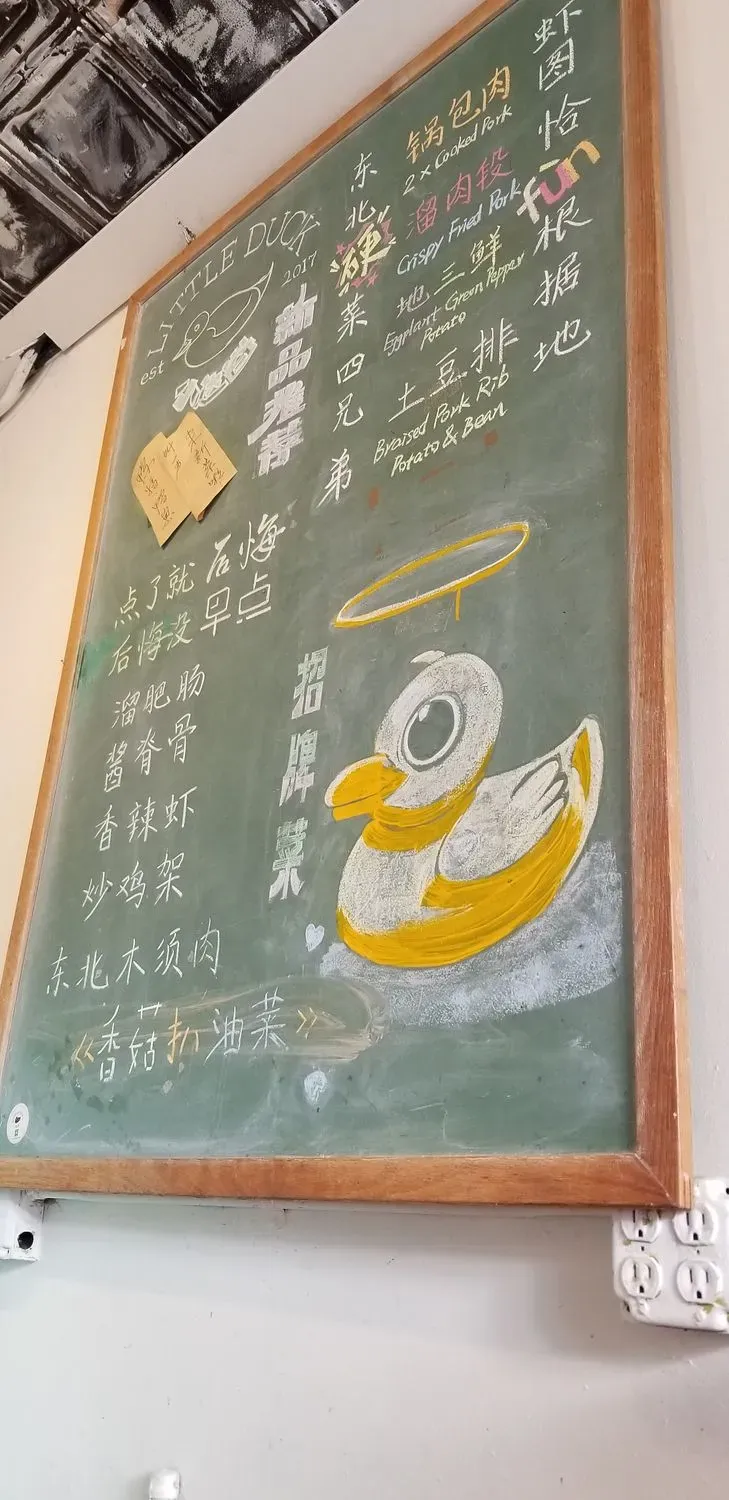 LITTLE DUCK
est
2017
新品推荐
东北硬菜四兄弟
锅包肉
2 x Cooked Pork
溜肉段
Crispy Fried Pork
地三鲜
Eggplant Green Pepper
Potato
土豆排
Braised Pork Rib
Potato & Bean
虾图恰fun根据地
点了就后悔
后悔没早点
招牌菜
溜肥肠
酱脊骨
香辣虾
炒鸡架
东北木须肉
《香菇扒油菜》